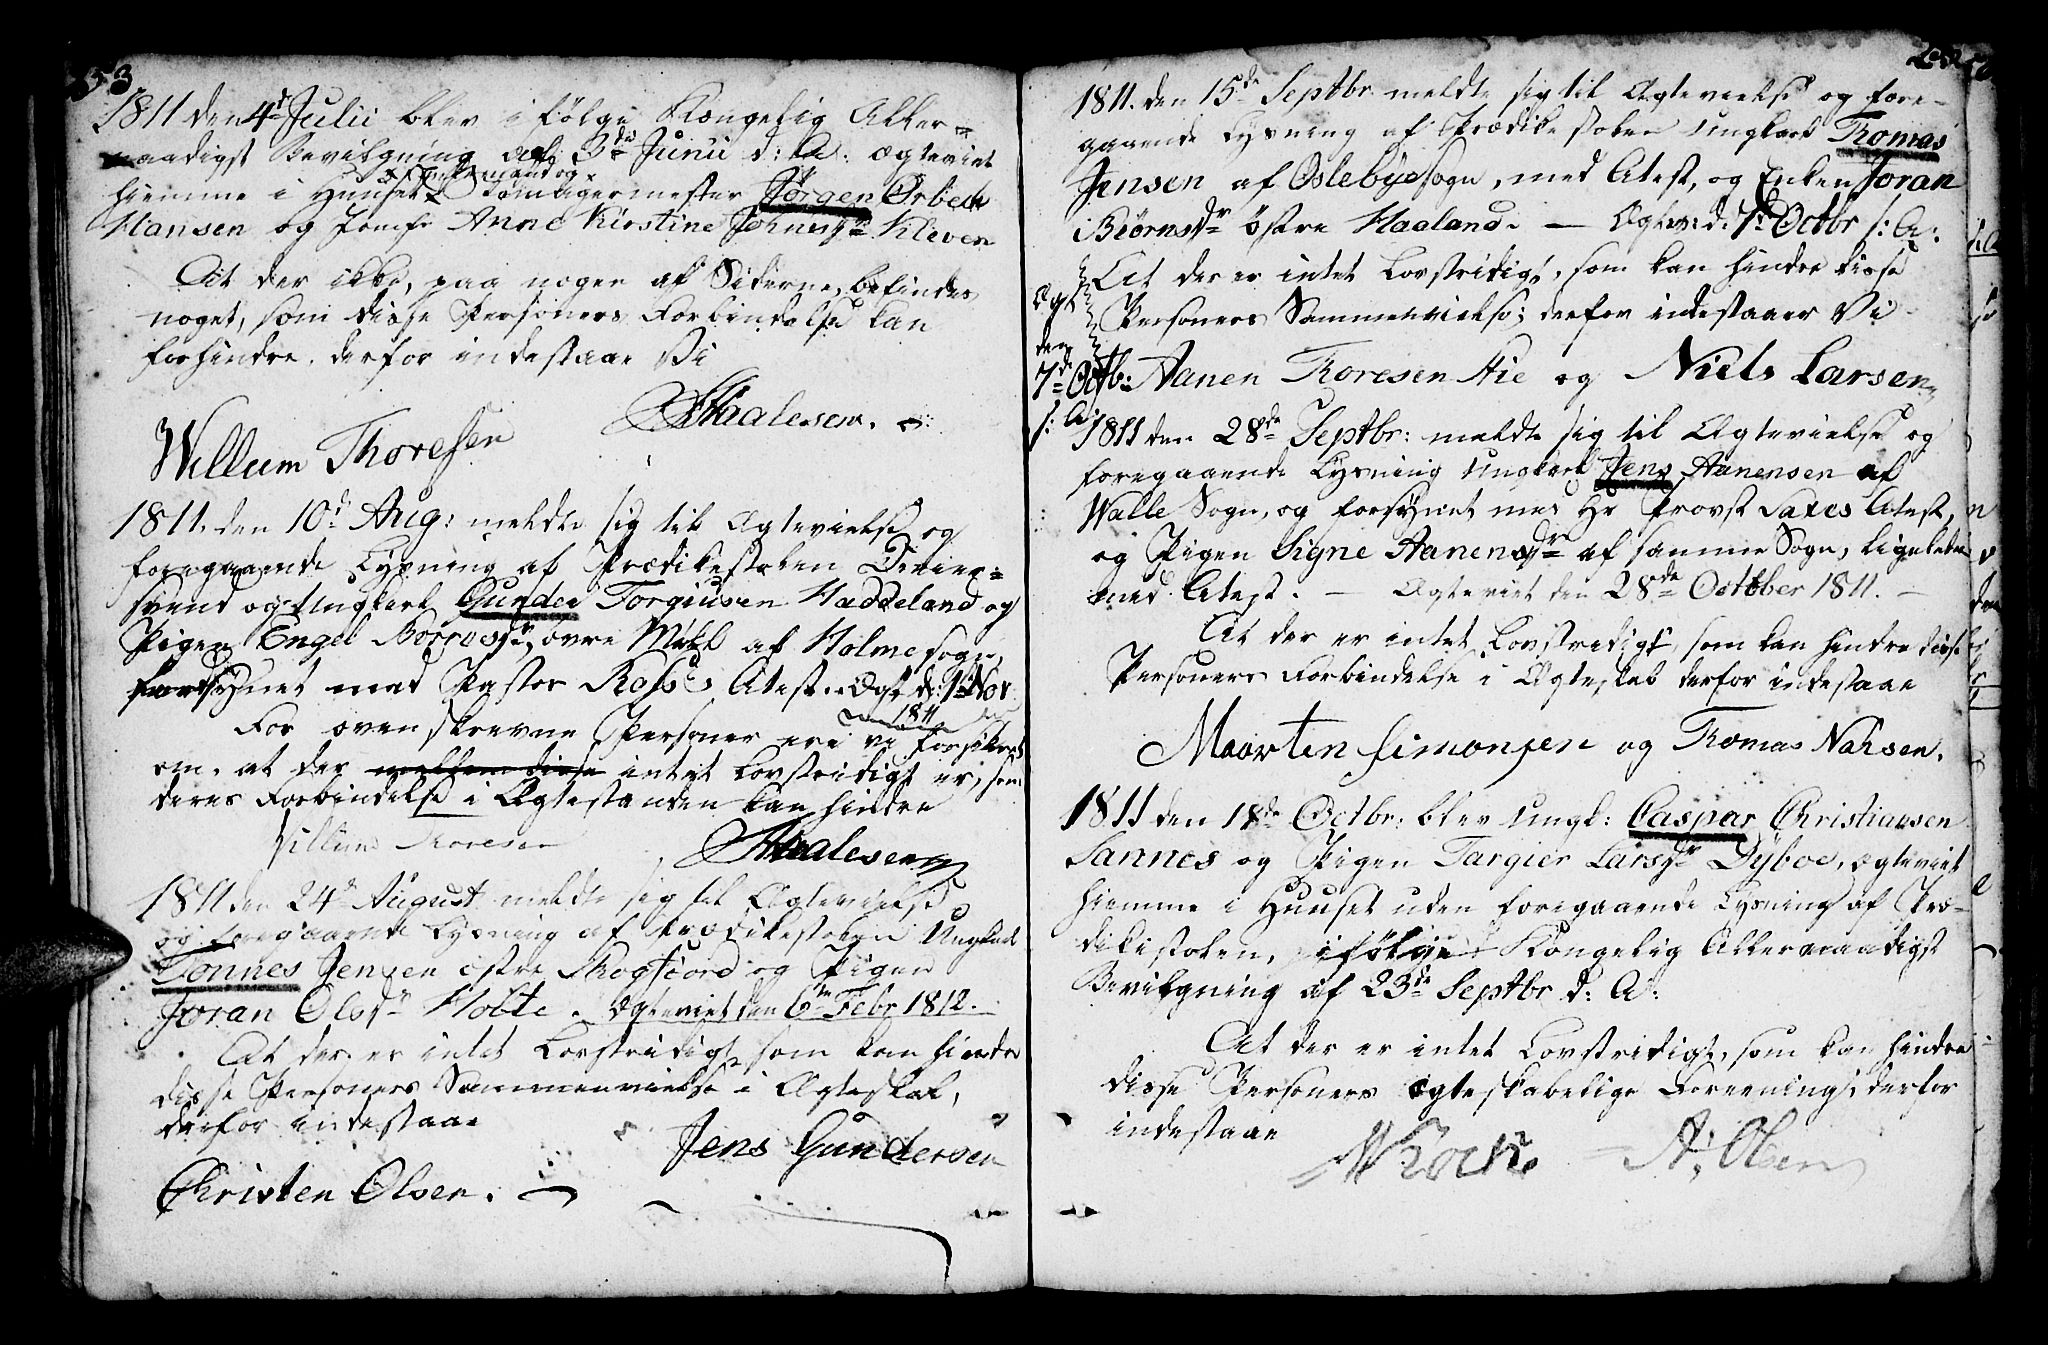 253
1811 den 4d Julii blev i følge Kongelig Aller=
naadigst Bevilgning af 3die Junii d: A: ægteviet
hiemme i Huuset Enkemand og Tømagermester Jørgen Orbech
Hansen og Jomfr Anne Kirstine Johnsdr Kleven
At der ikke, paa nogen af Siderne, befindes
noget, som disse Personers Forbindelse kan
forhindre, derfor indestaae Vi
Willum Thoresen Haalesen.
1811. den 10d Aug: meldte sig til Ægtevielse og
foregaaende Lysning af Prædikestolen
svend og Ungkarl Gunder Torgiusen Haddeland og
Pigen Engel Borresdr, øvre af Holme Sogn,
forsynet med Pastor Atest. Ægt. d: 1d Nov
1811
For ovenskrevne Personer ere vi forsikrede
om, at der mellem disse intet Lovstridigt er, som
deres Forbindelse i Ægtestanden kan hindre
Villum Thoresen Haalesen
1811 den 24d August meldte sig til Ægtevielse
og foregaaende Lysning af Prædikestolen Ungkarl
Tønnes Jensen østre Skogfiord og Pigen
Joran Olsdr Holte. Ægteviet den 6te Febr 1812.
At der er intet Lovstridigt som kan hindre
disse Personers Sammenvielse i Ægteskab,
derfor indestaae
Jens Gundersen
Christen Olsen.
1811. den 15de Septbr meldte sig til Ægtevielse og fore-
gaaende Lysning af Prædikestolen Ungkarl Thomas
Jensen af Oslebye Sogn, med Atest, og Enken Joran
Biørnsdr østre Haaland. — Ægtev: d. 7d Octbr s: A:
At der er intet Lovstridigt, som kan hindre disse
Personers Sammenvielse; derfor indestaaer Vi
Ægt
den
7de Octb:
s: A:
Aanen Thoresen Aie og Niels Larsen
1811 den 28de Septbr: meldte sig til Ægtevielse og
foregaaende Lysning Ungkarl Jens Aanensen af
Walle Sogn, og forsynet med Hr Provst Saxes Atest,
og Pigen Signe Aanensdr af samme Sogn, ligeledes
med Atest. — Ægteviet den 28de October 1811. —
At der er intet Lovstridigt som kan hindre disse
Personers Forbindelse i Ægteskab derfor indestaae
Maarten Simonsen og Thomas Nahsen.
1811 den 18de Octbr: blev Ungk: Caspar Christiansen
Sannes og Pigen Targier Larsdr Dyboe, ægteviet
hiemme i Huuset uden foregaaende Lysning af Præ-
dikestolen, ifølge Kongelig Allernaadigst
Bevilgning af 23de Septbr d: A:
At der er intet Lovstridigt, som kan hindre
disse Personers ægteskabelige Foreening, derfor
indestaae
A: Olsen